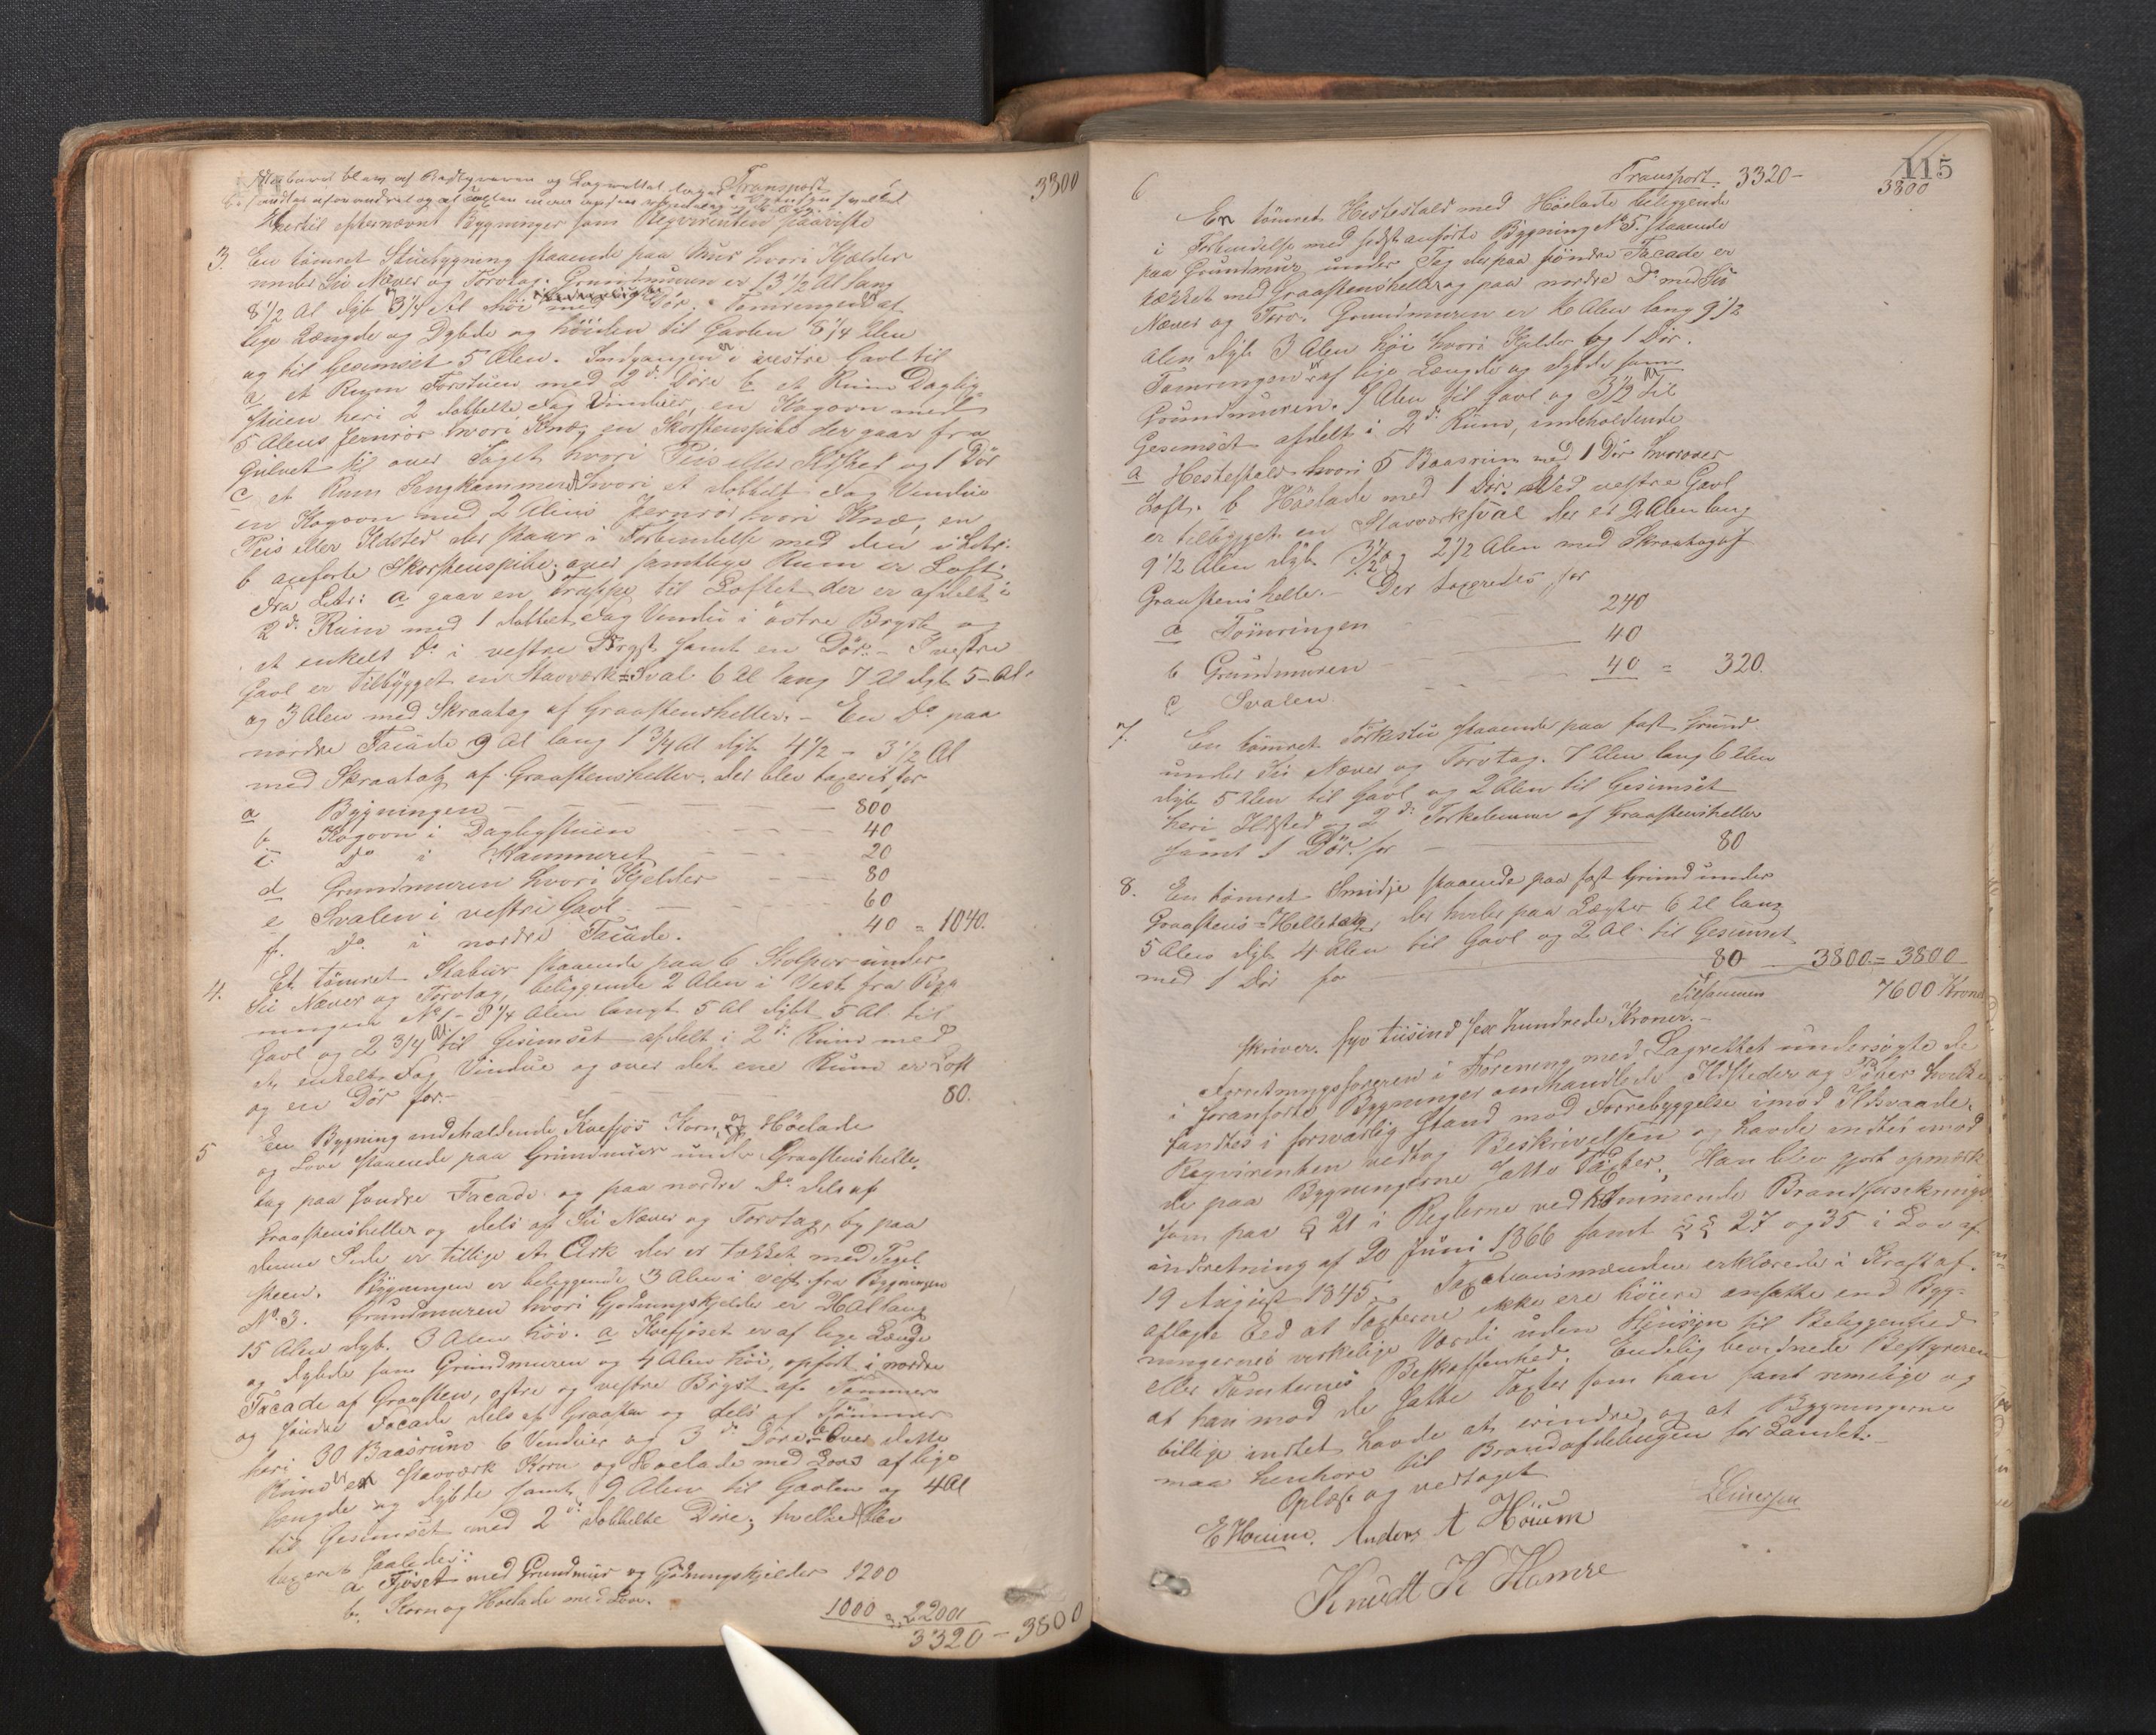 Transport 3800
Hertil efternævnt Bygninger som Reqvirenten paaviste
3. En tømret Stuebygning staaende paa Muur hvori Kjelder
under Sü Næver og Torvtag. Grundmuren er 13 1/2 Al lang
8 1/2 Al dyb 3 1/4 Al höi Dör; Tømringen er af
lige Længde og Dybde og höiden til Gavlen 8 1/4 Alen
og til Gesimset 5 Alen. Indgangen er i vestre Gavl til
a et Rum Forstuen med 2de Döre b et Rum Daglig-
stuen heri 2 dobbelte Fag Vinduer, en Kogovn med
5 Alens Jernrör hvori Knæ, en Skorstenspibe der gaar fra
Gulvet til over Taget hvori Peis eller Ildsted og 1 Dör
c et Rum Sengkammer hvori et dobbelt Fag Vindue
en Kogovn med 2 Alens Jernrör hvori Knæ, en
Peis eller Ildsted der staar i Forbindelse med den i Litr:
b anførte Skorstenspibe; over samtlige Rum er Loft
Fra Litr: a gaar en Trappe til Loftet der er afdelt i
2de Rum med 1 dobbelt Fag Vindue i östre Bryst og
et enkelt Do i vestre Bryst samt en Dör. - I vestre
Gavl er tilbygget en Stavværk=Sval 6 Al lang 7 Al dyb 5 - Al.
og 3 Alen med Skraatag af Graastensheller. - En Do paa
nordre Facade 9 Al lang 1 3/4 Al dyb 4 1/2 - 3 1/2 Al
med Skraatag af Graastenshellev. Der blev taxeret for
a Bygningen 800
b Kogovn i Dagligstuen 40
c. Do i Kammeret 20
d Grundmuren hvori Kjelder 80
e Svalen i vestre Gavl 60
f. Do i nordre Facade. 40 = 1040.
4. Et tømret Stabur staaende paa 6 Stolper under
Sü Næver og Torvtag, beliggende 2 Alen i Vest fra Byg-
ningen No 1 - 8 1/4 Alen langt 5 Al dybt 5 Al til
Gavl og 2 3/4 Al. til Gesimset afdelt i 2de Rum med
et enkelt Fag Vindue og over det ene Rum er Loft
og en Dör for. - 80.
5 En Bygning indeholdende Kvefjös Korn, og Höelade
og Love staaende paa Grundmuur under Graastenshelle
tag paa söndre Facade og paa nordre Do dels af
Graastensheller og dels af Sü Næver og Torvtag, og paa
denne Side er tillige et Ark der er tækket med Tegl
steen. Bygningen er beliggende 3 Alen i vest fra Bygningen
No 3. Grundmuren hvori Gjödningskjelder er Al lang
15 Alen dyb. 3 Alen höi. a Kvefjöset er af lige Længde
og dybde som Grundmuren og 4 Alen höi, opfört i nordre
Facade af Graasten, östre og vestre Bryst af Tømmer
og söndre Facade dels af Graasten og dels af Tömmer
heri 30 Baasrum 6 Vinduer og 3de Döre. b Over dette
Rum er Stavværk Korn og Hoelade med Love af lige
længde og dybde samt 9 Alen til Gavlen og 4 Al
til Gesimset med 2de dobbelte Döre; hvilket blev
taxeret saaledes:
a Fjöset med Grundmuur og Gjödningskjelder 1200
b. Korn og Hoelade med Love. 1000 = 2200
3320 - 3800
115
Transport. 3320 - 3800
6 En tömret Hestestald med Höelade beliggende
i Forbindelse med sidst anførte Bygning No 5. staaende
paa Grundmuur under Tag der paa söndre Facade er
tækket med Graastensheller og paa nordre Do med Sü
Næver og Torv. Grundmuren er Alen lang 9 1/2
Alen dyb 3 Alen höi hvori Kjelder og 1 Dör.
Tømringen er af lige Længde og dybde som
Grundmuren. 7 Alen til Gavl og 3 1/2 Al til
Gesimset afdelt i 2de Rum, indeholdende
a Hestestald hvori 5 Baasrum med 1 Dör hvorover
Loft. b Höelade med 1 Dör. Ved vestre Gavl
er tilbygget en Stavværksval der er 2 Alen lang
9 1/2 Alen dyb 3 1/2 og 2 1/2 Alen med Skraatag af
Graastens heller. - Der taxeredes for
a Tömringen 240
b Grundmuren 40
c Svalen 40 = 320.
7. En tömret Torkestu staaende paa fast Grund
under Sü Næver og Torvtag. 7 Alen lang 6 Alen
dyb 5 Alen til Gavl og 2 Alen til Gesimset
heri Ildsted og 2de Torkelemmer af Graastensheller
samt 1 Dör. for 80
8. En tömret Smidje staaende paa fast Grund under
Graastens=Helletag, der hviler paa Lægter 6 Al lang
5 Alen dyb 4 Alen til Gavl og 2 Al. til Gesimset
med 1 Dör for 80 3800 = 3800
Tilsammen 7600 Kroner
skriver. Syv tusind sex hundrede Kroner. -
Forretningsforeren i Forening med Lagrettet undersøgte de
i foranførte Bygninger omhandlede Ildsteder og Piber hvilke
fandtes i forsvarlig Stand mod Forrebyggelse imod Ildsvaade.
Reqvirenten vedtog Beskrivelsen og havde intet imod
de paa Bygningerne satte Taxter. Han blev gjort opmærk
som paa § 21 i Reglerne vedkommende Brandforsikrings
indretning af 20 Juni 1866 samt §§ 27 og 35 i Lov af
19 August 1845. - Taxationsmændene erklærede i Kraft af
aflagte Eed at Taxterne ikke ere höiere ansatte end Byg-
ningernes virkelige Værdi uden Hensyn til Beliggenhed
eller Tomternes Beskaffenhed. Endelig bevidnede Bestyreren
at han mod de satte Taxter som han fant rimelige og
billige intet havde at erindre, og at Bygningerne
maa henhøre til Brandafdelingen for Landet. -
Oplæst og vedtaget
E Houm. Anders A Höum
Knudt K Hamre